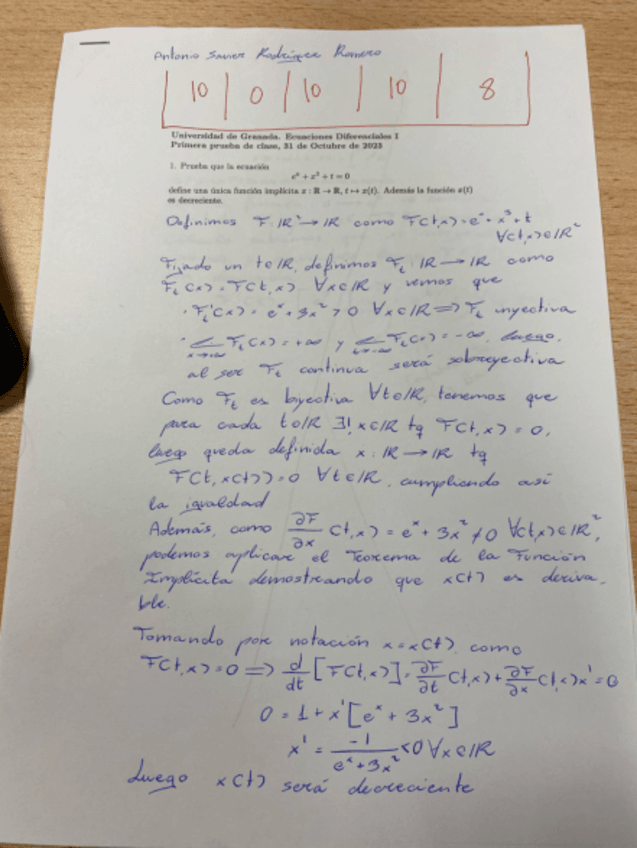 Antonio Javier Rodríguez Romero
10 | 0 | 10 | 10 | 8
Universidad de Granada. Ecuaciones Diferenciales I
Primera prueba de clase, 31 de Octubre de 2023
1. Prueba que la ecuación
eˣ + x³ + t = 0
define una única función implícita x : ℝ → ℝ, t ↦ x(t). Además la función x(t)
es decreciente.
Definimos F: ℝ² → ℝ como F(t,x) = eˣ + x³ + t
∀(t,x)∈ℝ²
Fijado un t∈ℝ, definimos F_t : ℝ → ℝ como
F_t(x) = F(t,x) ∀x∈ℝ y vemos que
· F_t'(x) = eˣ + 3x² > 0 ∀x∈ℝ ⟹ F_t inyectiva
· lim x→+∞ F_t(x) = +∞ y lim x→-∞ F_t(x) = -∞, luego,
al ser F_t continua será sobreyectiva
Como F_t es biyectiva ∀t∈ℝ, tenemos que
para cada t∈ℝ ∃! x∈ℝ tq F(t,x) = 0,
luego queda definida x : ℝ → ℝ tq
F(t,x(t)) = 0 ∀t∈ℝ, cumpliendo así
la igualdad
Además, como ∂F/∂x (t,x) = eˣ + 3x² ≠ 0 ∀(t,x)∈ℝ²,
podemos aplicar el Teorema de la Función
Implícita demostrando que x(t) es deriva-
ble.
Tomando por notación x = x(t), como
F(t,x) = 0 ⟹ d/dt [F(t,x)] = ∂F/∂t (t,x) + ∂F/∂x (t,x)x' = 0
0 = 1 + x'[eˣ + 3x²]
x' = -1/(eˣ + 3x²) < 0 ∀x∈ℝ
Luego x(t) será decreciente